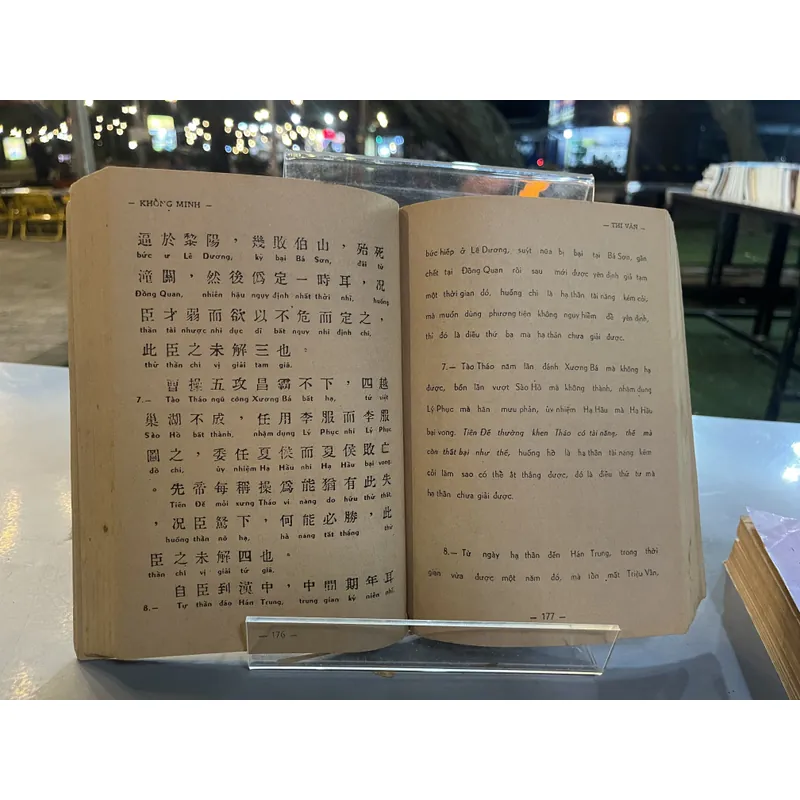 — KHỔNG MINH —
逼於黎陽，幾敗伯山，殆死
bức ư Lê Dương, kỷ bại Bá Sơn, đãi tử
潼關，然後僞定一時耳，况
Đồng Quan, nhiên hậu ngụy định nhất thời nhĩ, huống
臣才弱而欲以不危而定之，
thần tài nhược nhi dục dĩ bất nguy nhi định chi,
此臣之未解三也。
thử thần chi vị giải tam giả.
曹操五攻昌霸不下，四越
7.— Tào Tháo ngũ công Xương Bá bất hạ, tứ việt
巢湖不成，任用李服而李服
Sào Hồ bất thành, nhậm dụng Lý Phục nhi Lý Phục
圖之，委任夏侯而夏侯敗亡
đồ chi, ủy nhiệm Hạ Hầu nhi Hạ Hầu bại vong.
。先帝每稱操爲能猶有此失
Tiên Đế mỗi xưng Tháo vi năng do hữu thử thất,
，况臣駑下，何能必勝，此
huống thần nô hạ, hà năng tất thắng, thử
臣之未解四也。
thần chi vị giải tứ giả.
自臣到漢中，中間期年耳
8.— Tự thần đáo Hán Trung, trung gian kỳ niên nhĩ,
— 176 —
— THI VĂN —
bức hiếp ở Lê Dương, suýt nữa bị bại tại Bá Sơn, gần
chết tại Đồng Quan rồi sau mới được yên định giả tạm
một thời gian đó, huống chi là hạ thần tài năng kém cỏi,
mà muốn dùng phương tiện không nguy hiểm để yên định,
thì đó là điều thứ ba mà hạ thần chưa giải được.
7.— Tào Tháo năm lần đánh Xương Bá mà không hạ
được, bốn lần vượt Sào Hồ mà không thành, nhậm dụng
Lý Phục mà hắn mưu phản, ủy nhiệm Hạ Hầu mà Hạ Hầu
bại vong. Tiên Đế thường khen Tháo có tài năng, thế mà
còn thất bại như thế, huống hồ là hạ thần tài năng kém
cỏi làm sao có thể ắt thắng được, đó là điều thứ tư mà
hạ thần chưa giải được.
8.— Từ ngày hạ thần đến Hán Trung, trong thời
gian vừa được một năm đó, mà tổn mất Triệu Vân,
— 177 —